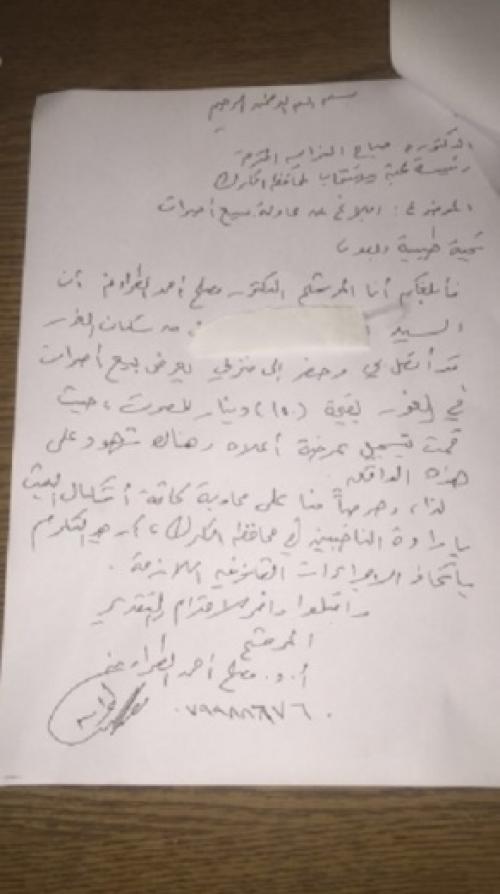 بسم الله الرحمن الرحيم
الدكتورة صباح النوايسه المحترمة
رئيسة لجنة الانتخاب لمحافظة الكرك
الموضوع: ابلاغ عن محاولة بيع أصوات
تحية طيبة وبعد،
فأبلغكم أنا المرشح الدكتور مصلح أحمد الطراونه أن
السيد من سكان الغور
قد أتصل بي وحضر إلى منزلي يعرض بيع أصوات
في الغور بقيمة (١٥٠) دينار للصوت، حيث
قمت بتسجيل عرضه أعلاه وهناك شهود على
هذه الواقعه.
لذا، وحرصاً منا على محاربة كافة أشكال العبث
بإرادة الناخبين في محافظة الكرك، أرجو التكرم
بإتخاذ الاجراءات القانونيه اللازمة.
واقبلوا وافر الاحترام والتقدير
المرشح
أ.د. مصلح أحمد الطراونه